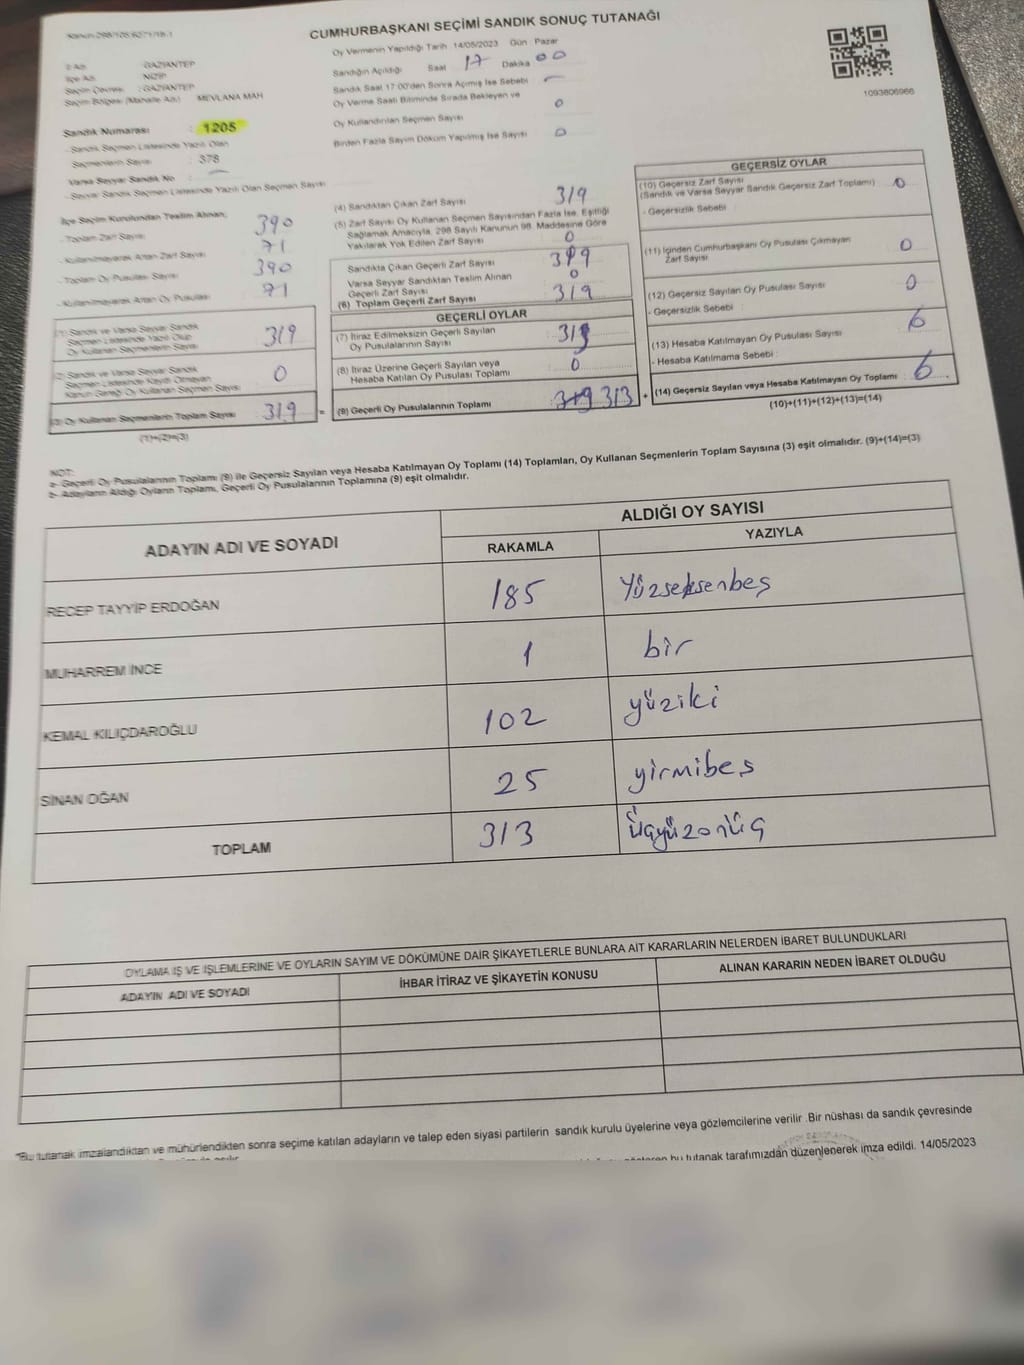 CUMHURBAŞKANI SEÇİMİ SANDIK SONUÇ TUTANAĞI
Oy Vermenin Yapıldığı Tarih 14/05/2023 Gün Pazar
Sandığın Açıldığı Saat 17 Dakika 00
Sandık Saat 17:00'den Sonra Açılmış İse Sebebi
Oy Verme Saati Bitiminde Sırada Bekleyen ve
Oy Kullandırılan Seçmen Sayısı 0
Birden Fazla Sayım Döküm Yapılmış İse Sayısı 0
1093806966
İl Adı GAZİANTEP
İlçe Adı NİZİP
Seçim Çevresi : GAZİANTEP
Seçim Bölgesi (Mahalle Adı) MEVLANA MAH
Sandık Numarası : 1205
- Sandık Seçmen Listesinde Yazılı Olan
Seçmenlerin Sayısı : 378
Varsa Seyyar Sandık No
- Seyyar Sandık Seçmen Listesinde Yazılı Olan Seçmen Sayısı
İlçe Seçim Kurulundan Teslim Alınan,
- Toplam Zarf Sayısı 390
- Kullanılmayarak Artan Zarf Sayısı 71
- Toplam Oy Pusulası Sayısı 390
- Kullanılmayarak Artan Oy Pusulası 71
(1) Sandık ve Varsa Seyyar Sandık
Seçmen Listesinde Yazılı Olup
Oy Kullanan Seçmenlerin Sayısı 319
(2) Sandık ve Varsa Seyyar Sandık
Seçmen Listesinde Kayıtlı Olmayan
Kanun Gereği Oy Kullanan Seçmen Sayısı 0
(3) Oy Kullanan Seçmenlerin Toplam Sayısı 319 =
(1)+(2)=(3)
(4) Sandıktan Çıkan Zarf Sayısı 319
(5) Zarf Sayısı Oy Kullanan Seçmen Sayısından Fazla İse, Eşitliği
Sağlamak Amacıyla, 298 Sayılı Kanunun 98. Maddesine Göre
Yakılarak Yok Edilen Zarf Sayısı 0
Sandıkta Çıkan Geçerli Zarf Sayısı 319
Varsa Seyyar Sandıktan Teslim Alınan
Geçerli Zarf Sayısı 0
(6) Toplam Geçerli Zarf Sayısı 319
GEÇERLİ OYLAR
(7) İtiraz Edilmeksizin Geçerli Sayılan
Oy Pusulalarının Sayısı 313
(8) İtiraz Üzerine Geçerli Sayılan veya
Hesaba Katılan Oy Pusulası Toplamı 0
(9) Geçerli Oy Pusulalarının Toplamı 319 313 +
GEÇERSİZ OYLAR
(10) Geçersiz Zarf Sayısı
(Sandık ve Varsa Seyyar Sandık Geçersiz Zarf Toplamı) 0
- Geçersizlik Sebebi :
(11) İçinden Cumhurbaşkanı Oy Pusulası Çıkmayan
Zarf Sayısı 0
(12) Geçersiz Sayılan Oy Pusulası Sayısı 0
- Geçersizlik Sebebi :
(13) Hesaba Katılmayan Oy Pusulası Sayısı 6
- Hesaba Katılmama Sebebi :
(14) Geçersiz Sayılan veya Hesaba Katılmayan Oy Toplamı 6
(10)+(11)+(12)+(13)=(14)
NOT:
a- Geçerli Oy Pusulalarının Toplamı (9) ile Geçersiz Sayılan veya Hesaba Katılmayan Oy Toplamı (14) Toplamları, Oy Kullanan Seçmenlerin Toplam Sayısına (3) eşit olmalıdır. (9)+(14)=(3)
b- Adayların Aldığı Oyların Toplamı, Geçerli Oy Pusulalarının Toplamına (9) eşit olmalıdır.
ADAYIN ADI VE SOYADI
ALDIĞI OY SAYISI
RAKAMLA YAZIYLA
RECEP TAYYİP ERDOĞAN 185 Yüzseksenbeş
MUHARREM İNCE 1 bir
KEMAL KILIÇDAROĞLU 102 yüziki
SİNAN OĞAN 25 yirmibeş
TOPLAM 313 üçyüzonüç
OYLAMA İŞ VE İŞLEMLERİNE VE OYLARIN SAYIM VE DÖKÜMÜNE DAİR ŞİKAYETLERLE BUNLARA AİT KARARLARIN NELERDEN İBARET BULUNDUKLARI
ADAYIN ADI VE SOYADI İHBAR İTİRAZ VE ŞİKAYETİN KONUSU ALINAN KARARIN NEDEN İBARET OLDUĞU
*Bu tutanak imzalandıktan ve mühürlendikten sonra seçime katılan adayların ve talep eden siyasi partilerin sandık kurulu üyelerine veya gözlemcilerine verilir .Bir nüshası da sandık çevresinde
bu tutanak tarafımızdan düzenlenerek imza edildi. 14/05/2023